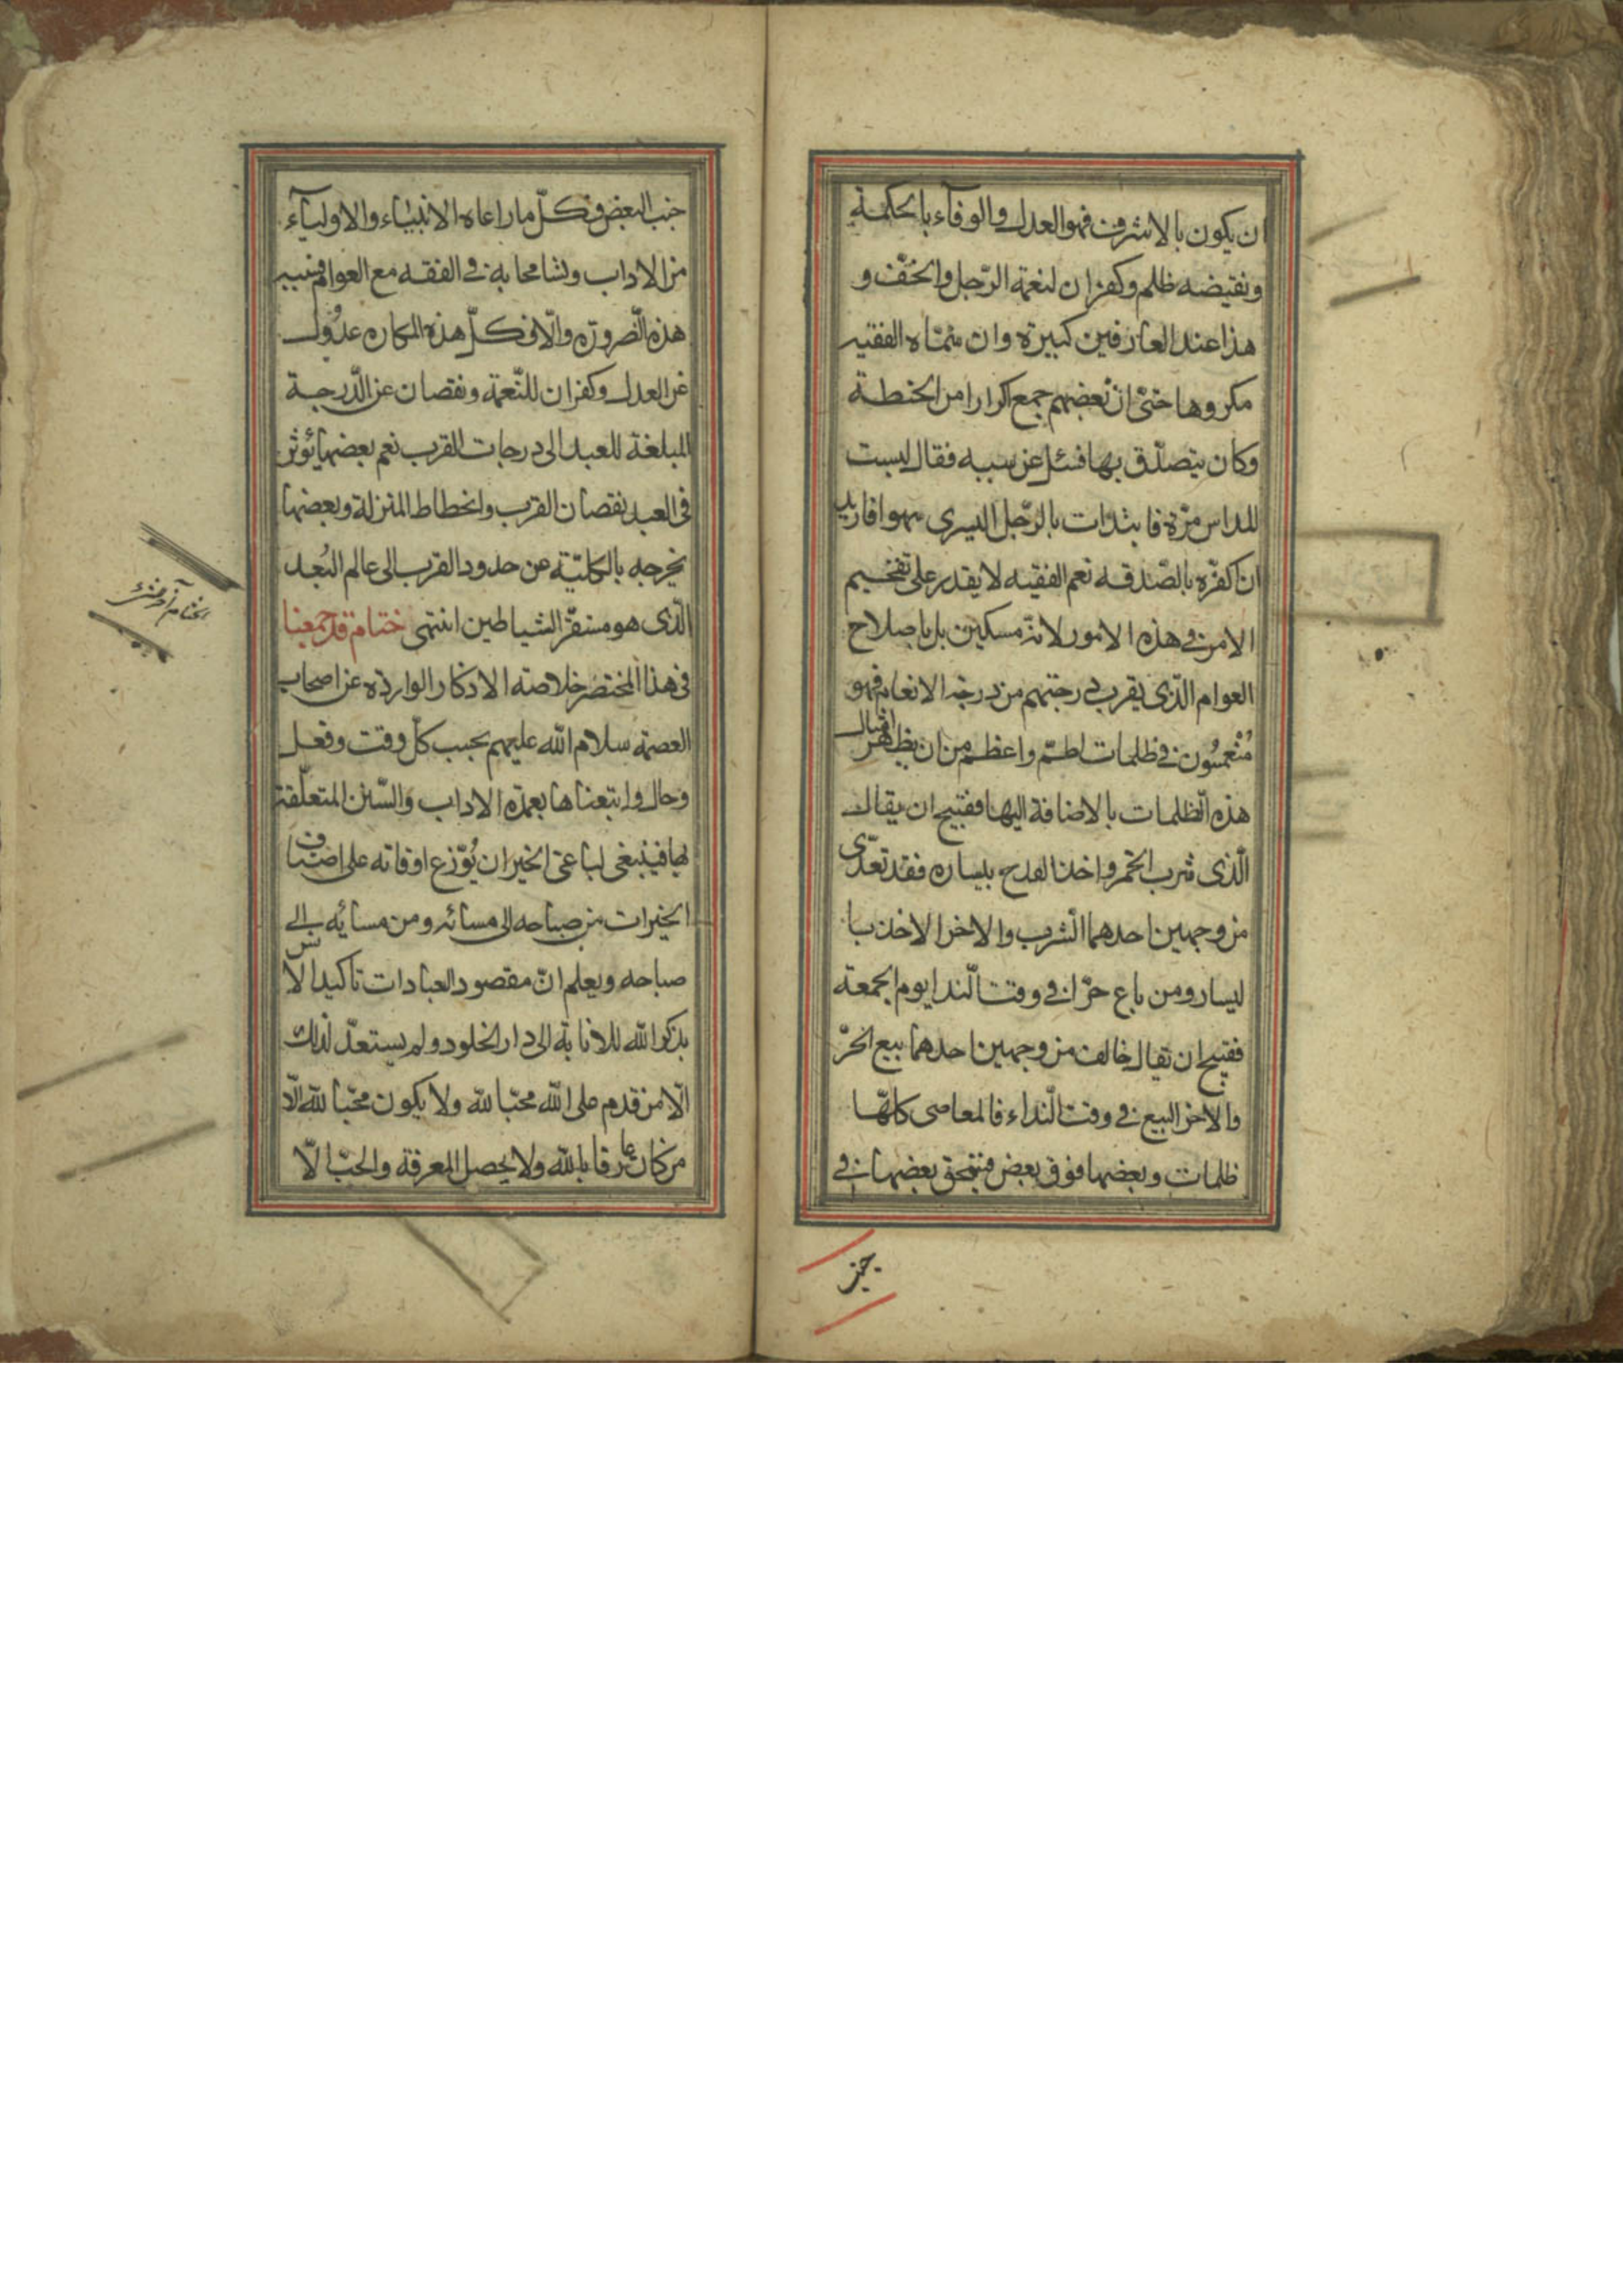 ان يكون بالاشرف فهو العدل والوفآء بالحكمة
ونقيضه ظلم وكفران لنعمة الرّجل والخفّ و
هذا عند العارفين كبيرة وان سمّاه الفقيه
مكروها حتىّ انّ بعضهم جمع اكرارا من الحنطة
وكان يتصدّق بها فسئل عن سببه فقال لبست
المداس مرّة فابتدات بالرّجل اليسرى سهوا فاريد
ان اكفّره بالصّدقه نعم الفقيه لا يقدر على تفخيم
الامر فى هذه الامور لانه مسكين بل باصلاح
العوام الّذى يقرب درجتهم من درجة الانعام فهم
مُنْغمسُون فى ظلمات اطمّ واعظم من ان يظهر امثال
هذه الظلمات بالاضافة اليها فقبيح ان يقال
الّذى شرب الخمر واخذ القدح بيساره فقد تعدّى
من وجهين احدهما الشّرب والاخر الاخذ با
ليسار ومن باع حرّا فى وقت النّدا يوم الجمعة
فقبيح ان يقال خالف من وجهين احدهما بيع الحرّ
والاخر البيع فى وقت النّداء فالمعاصى كلهّا
ظلمات وبعضها فوق بعض فينمحق بعضها فى
جنب
جنب البعض وكلّ ما راعاه الانبيَاء والاوليآء
من الاداب وتسامحنا به فى الفقه مع العوام فسببه
هذه الضّرورة والّا فكلّ هذه المكاره عدُول
عن العدل وكفران للنّعمة ونقصان عن الدّرجة
المبلغة للعبد الى درجات القرب نعم بعضها يُوثر
فى العبد نقصان القرب وانحطاط المنزلة وبعضها
يخرجه بالكليّة عن حدود القرب الى عالم البُعد
الّذى هو مستقرّ الشياطين انتهى ختام قد جمعنا
فى هذا المختصر خلاصة الاذكار الواردة عن اصحاب
العصمة سلام الله عليهم بحسب كلّ وقت وفعل
وحال واتبعناها بعمدة الاداب والسّنن المتعلّقة
بها فينبغى لباغى الخير ان يُوّزع اوقاته على اصناف
الخيرات من صباحه الى مسائه ومن مسايُه الى
صباحه ويعلم انّ مقصود العبادات تاكيد الانس
بذكر الله للانابة الى دار الخلود ولم يستعدّ لذلك
الّا من قدم على الله محبّا لله ولا يكون محبّا لله الّا
من كان عارفا بالله ولا يحصل المعرفة والحبّ الّا